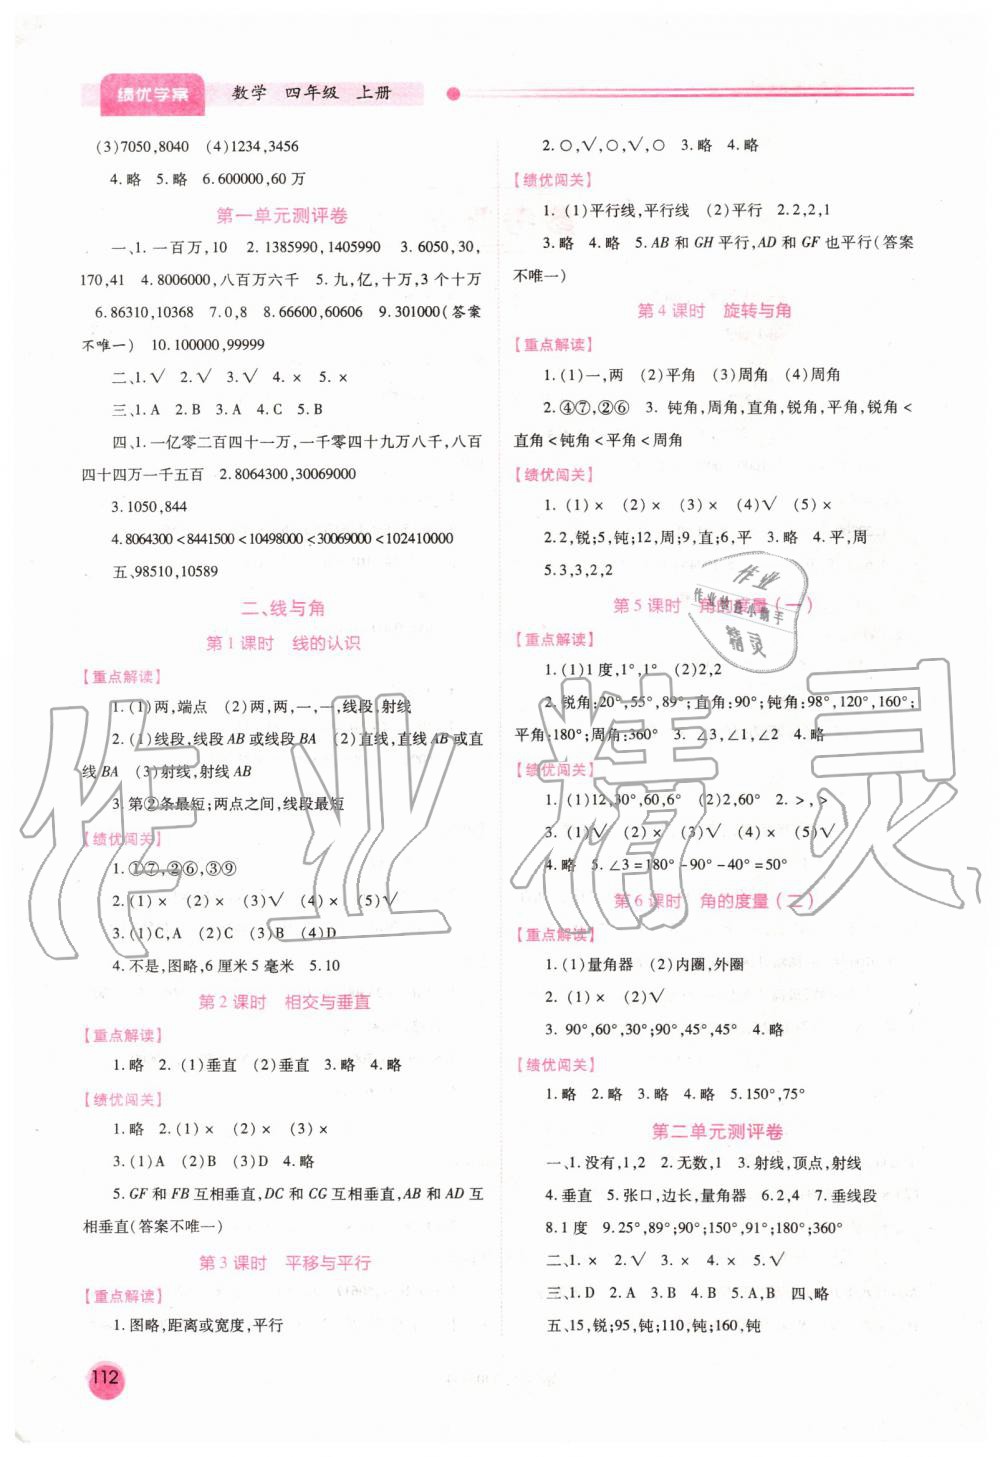 绩优学案 数学 四年级 上册
(3)7050,8040 (4)1234,3456
4.略 5.略 6.600000,60万
第一单元测评卷
一、1.一百万,10 2.1385990,1405990 3.6050,30,
170,41 4.8006000,八百万六千 5.九,亿,十万,3个十万
6.86310,10368 7.0,8 8.66600,60606 9.301000(答案
不唯一) 10.100000,99999
二、1.√ 2.√ 3.√ 4.× 5.×
三、1.A 2.B 3.A 4.C 5.B
四、1.一亿零二百四十一万,一千零四十九万八千,八百
四十四万一千五百 2.8064300,30069000
3.1050,844
4.8064300<8441500<10498000<30069000<102410000
五、98510,10589
二、线与角
第1课时 线的认识
【重点解读】
1.(1)两,端点 (2)两,两,一,一,线段,射线
2.(1)线段,线段AB或线段BA (2)直线,直线AB或直
线BA (3)射线,射线AB
3.第②条最短;两点之间,线段最短
【绩优闯关】
1.①⑦,②⑥,③⑨
2.(1)× (2)× (3)√ (4)× (5)√
3.(1)C,A (2)C (3)B (4)D
4.不是,图略,6厘米5毫米 5.10
第2课时 相交与垂直
【重点解读】
1.略 2.(1)垂直 (2)垂直 3.略 4.略
【绩优闯关】
1.略 2.(1)× (2)× (3)×
3.(1)A (2)B (3)D 4.略
5.GF和FB互相垂直,DC和CG互相垂直,AB和AD互
相垂直(答案不唯一)
第3课时 平移与平行
【重点解读】
1.图略,距离或宽度,平行
112
2.○,√,○,√,○ 3.略 4.略
【绩优闯关】
1.(1)平行线,平行线 (2)平行 2.2,2,1
3.略 4.略 5.AB和GH平行,AD和GF也平行(答案
不唯一)
第4课时 旋转与角
【重点解读】
1.(1)一,两 (2)平角 (3)周角 (4)周角
2.④⑦,②⑥ 3.钝角,周角,直角,锐角,平角,锐角<
直角<钝角<平角<周角
【绩优闯关】
1.(1)× (2)× (3)× (4)√ (5)×
2.2,锐;5,钝;12,周;9,直;6,平 3.略 4.平,周
5.3,3,2,2
第5课时 角的度量(一)
【重点解读】
1.(1)1度,1°,1° (2)2,2
2.锐角:20°,55°,89°;直角:90°;钝角:98°,120°,160°;
平角:180°;周角:360° 3.∠3,∠1,∠2 4.略
【绩优闯关】
1.(1)12,30°,60,6° (2)2,60° 2.>,>
3.(1)√ (2)× (3)√ (4)× (5)√
4.略 5.∠3=180°-90°-40°=50°
第6课时 角的度量(二)
【重点解读】
1.(1)量角器 (2)内圈,外圈
2.(1)× (2)√
3.90°,60°,30°;90°,45°,45° 4.略
【绩优闯关】
1.略 2.略 3.略 4.略 5.150°,75°
第二单元测评卷
一、1.没有,1,2 2.无数,1 3.射线,顶点,射线
4.垂直 5.张口,边长,量角器 6.2,4 7.垂线段
8.1度 9.25°,89°;90°;150°,91°;180°;360°
二、1.× 2.√ 3.× 4.× 5.√
三、1.D 2.A 3.B 4.B 5.A,B 四、略
五、15,锐;95,钝;110,钝;160,钝
作业精灵
作业
作业检查小帮手
精灵